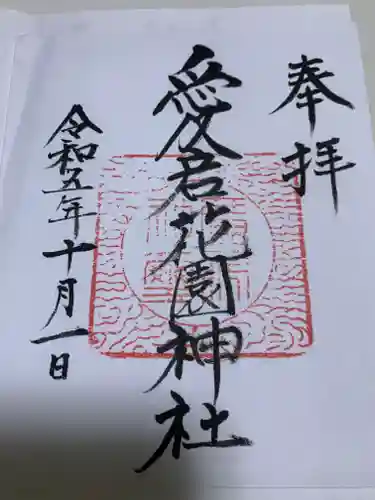 奉拝
愛君花園神社
令和五年十月一日